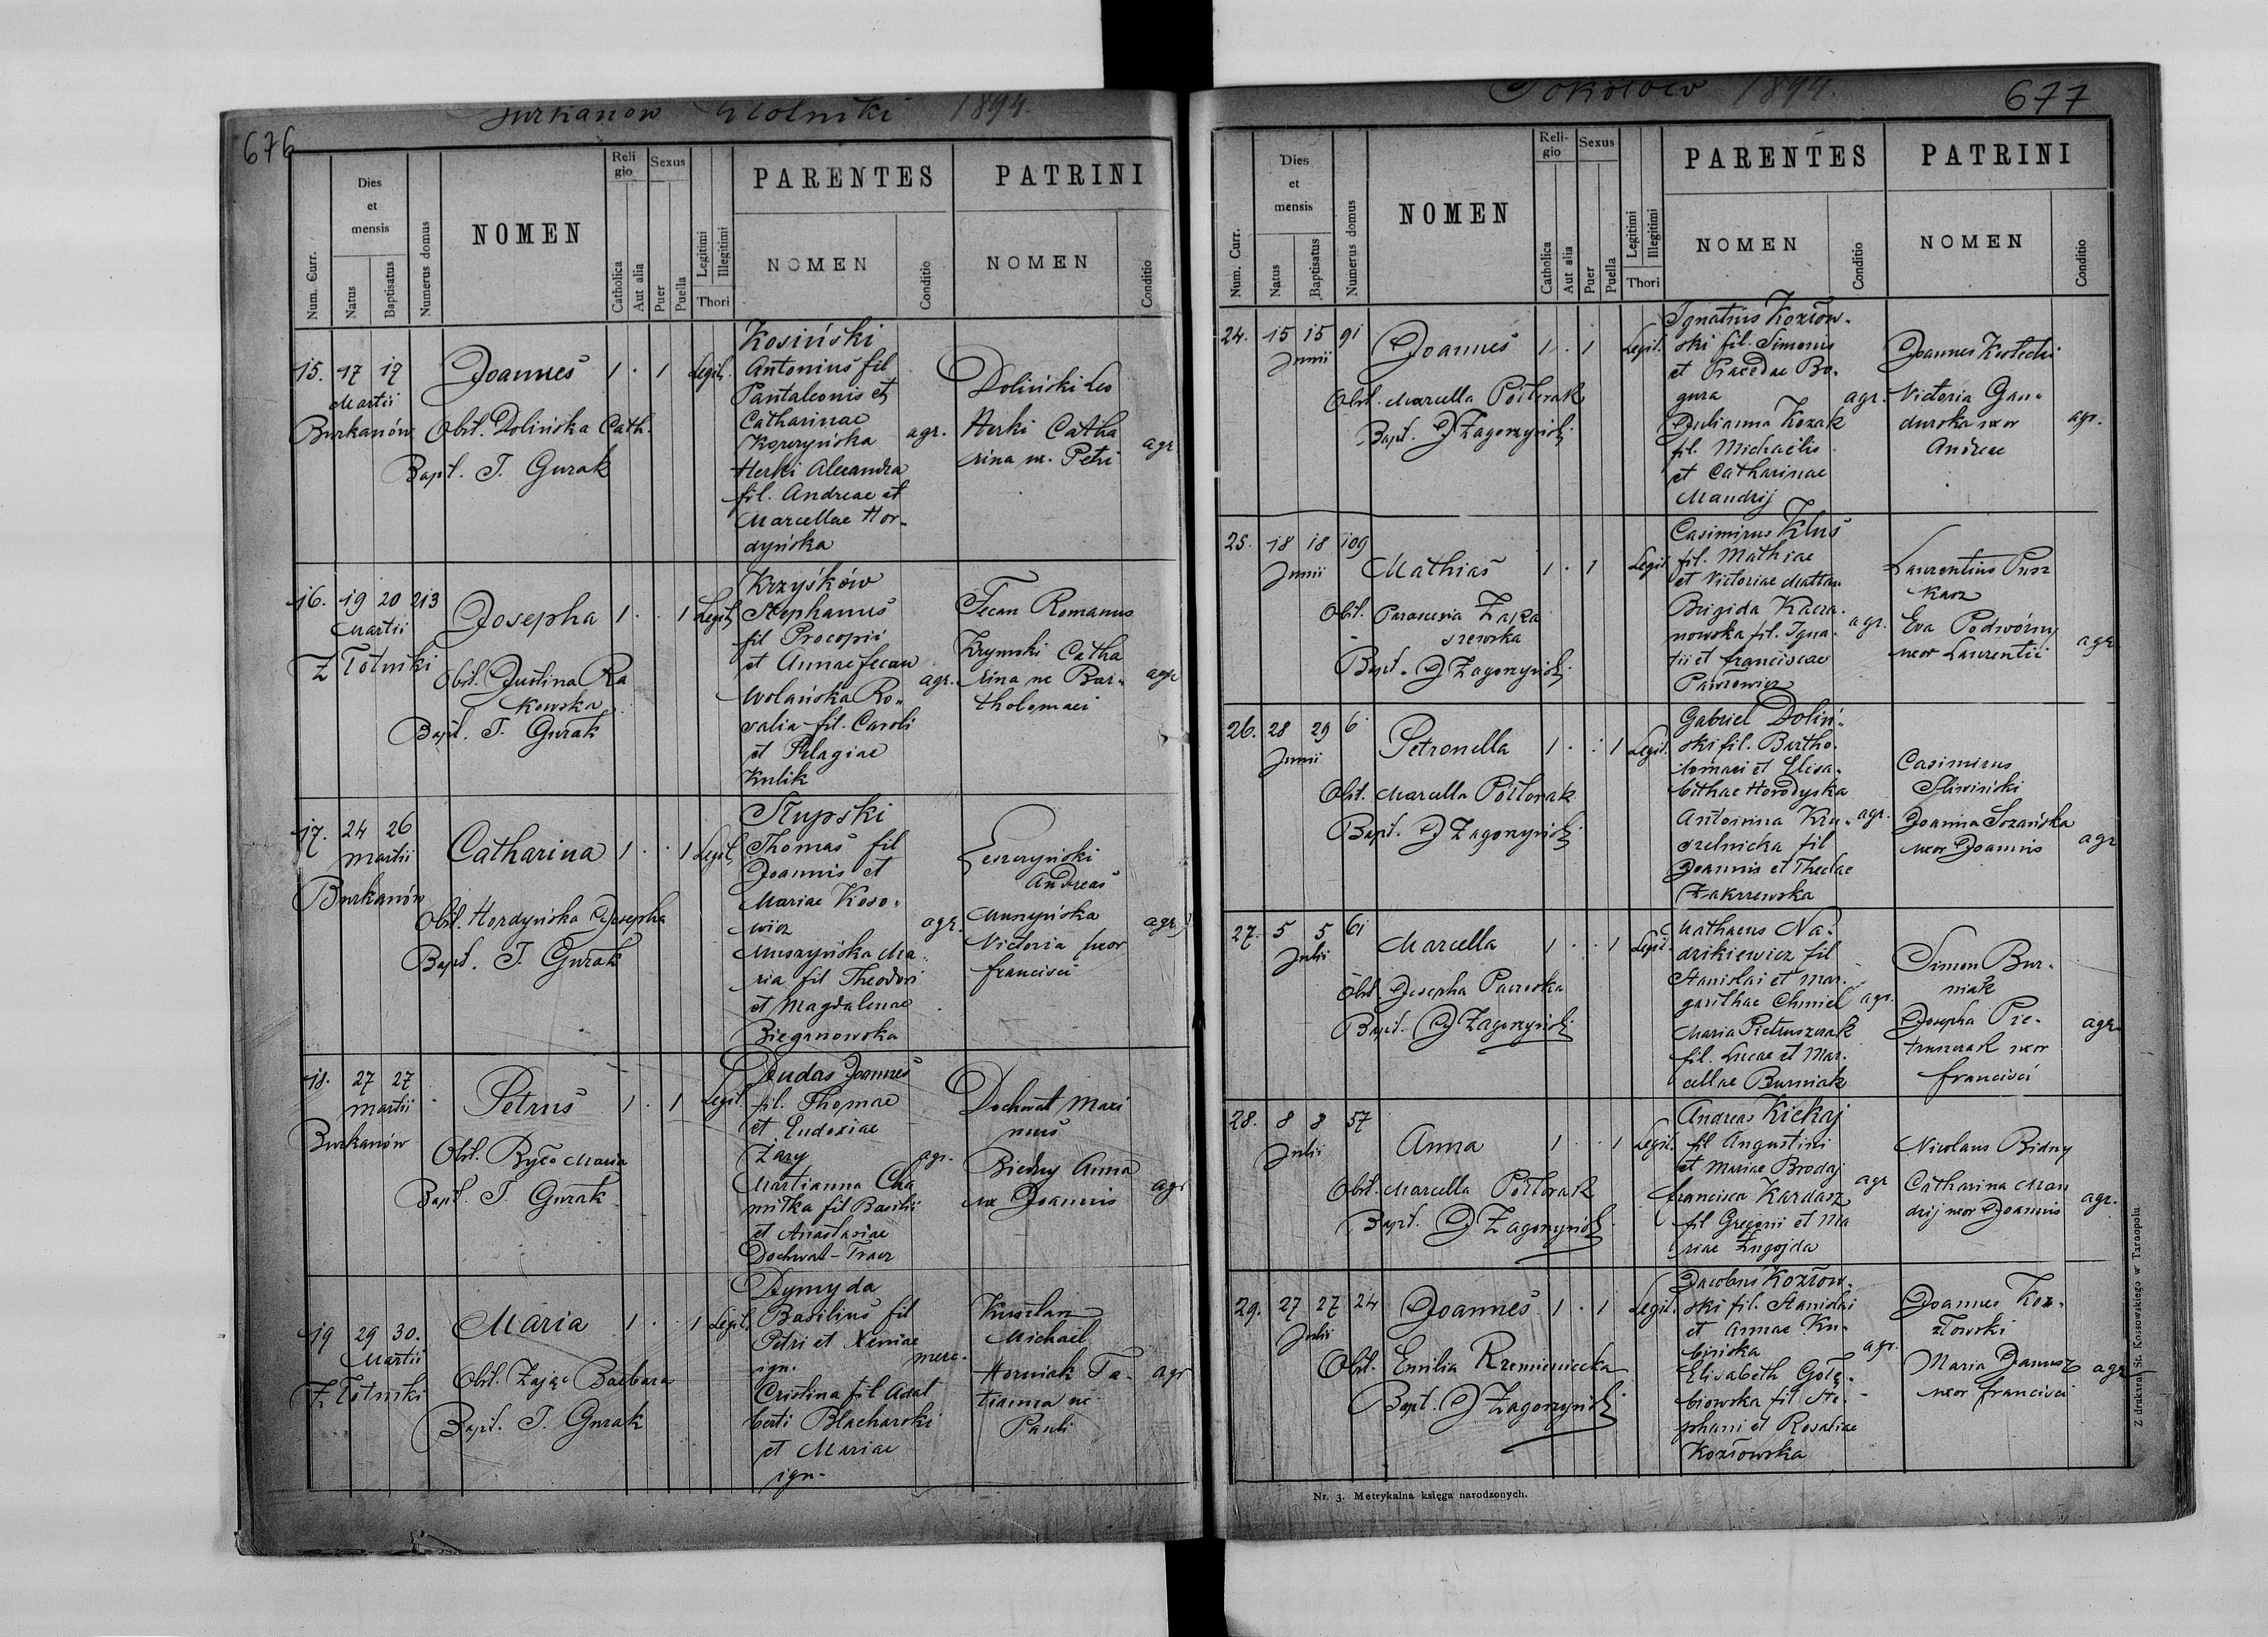 Burkanów Złotniki 1894.
676
Num. Curr.
Dies
et
mensis
Natus
Baptisatus
Numerus domus
NOMEN
Reli
gio
Catholica
Aut alia
Sexus
Puer
Puella
Legitimi
Illegitimi
Thori
PARENTES
NOMEN
Conditio
PATRINI
NOMEN
Conditio
15. 17 17
Martii
Burkanów
Joannes 1 . 1 Legit.
Obst. Dolińska Cath.
Bapt. T. Gurak
Kosiński
Antonius fil
Pantaleonis et
Catharinae
agr.
Herki Alexandra
fil. Andreae et
Marcellae Hor-
dyńska
Doliński Leo
Herki Catha
rina ux. Petri
agr
16. 19 20 213
Martii
Złotniki
Josepha 1 . . 1 Legit
Obst. Justina Ra
kowska
Bapt. T. Gurak
Krzyśków
Stephanus
fil Procopii
et Annae Fecan
agr.
Wolańska Ro-
salia fil. Caroli
et Pelagiae
Kulik
Fecan Romanus
Krymski Catha
rina ux Bar-
tholomaei
agr
17. 24 26
Martii
Burkanów
Catharina 1 . . 1 Legit
Obst. Hordyńska Josepha
Bapt. T. Gurak
Słupski
Thomas fil
Joannis et
Mariae Koso-
wicz
agr.
Muszyńska Ma-
ria fil Theodori
et Magdalenae
Bieganowska
Andreas
Muszyńska
Victoria uxor
Francisci
agr
18. 27 27
Martii
Burkanów
Petrus 1 . 1 Legit.
Obst. Maria
Bapt. T. Gurak
Dudas Joannes
fil. Thomae
et Eudoxiae
Zary
agr.
Martianna Cha
mitka fil Basilii
et Anastasiae
Dochwat-Tracz
Dochwat Maxi
mus
Biedny Anna
ux Joannis
agr
19 29 30.
Martii
Złotniki
Maria 1 . . 1 Legit.
Obst. Zając Barbara
Bapt. T. Gurak
Dymyda
Basilius fil
Petri et Xeniae
ign.
merc.
Cristina fil Adal
berti Blacharski
et Mariae
ign.
Michael
Horniak Ta-
tianna ux
Pauli
agr
Sokołów 1894.
677
Num. Curr.
Dies
et
mensis
Natus
Baptisatus
Numerus domus
NOMEN
Reli-
gio
Catholica
Aut alia
Sexus
Puer
Puella
Legitimi
Illegitimi
Thori
PARENTES
NOMEN
Conditio
PATRINI
NOMEN
Conditio
24. 15 15 91
Junii
Joannes 1 . 1 Legit.
Obst. Marcella Półtorak
Bapt. J Zagorzyński
Ignatius Kozłow-
ski fil. Simonis
et Praxedae Bo-
gura
agr.
Julianna Kozak
fil. Michaelis
et Catharinae
Mandzij
Joannes
Victoria Gan-
durska uxor
Andreae
agr.
25. 18 18 109
Junii
Mathias 1 . 1 Legit
Obst. Parascevia
Bapt. J Zagorzyński
Casimirus Kluś
fil. Mathiae
et Victoriae
Brigida Kacza-
nowska fil. Igna-
tii et Franciscae
Pawłowicz
agr.
Laurentius Pusz
karz
Eva Podwórny
uxor Laurentii
agr
26. 28 29 6
Junii
Petronella 1 . . 1 Legit.
Obst. Marcella Półtorak
Bapt. J Zagorzyński
Gabriel Doliń-
ski fil. Bartho-
lomaei et Elisa-
bethae Horodyska
Antonina Kru-
szelnicka fil
Joannis et Theclae
Zakrzewska
agr.
Casimirus
Śliwiński
Joanna Sozańska
uxor Joannis
agr
27. 5 5 61
Julii
Marcella 1 . . 1 Legit.
Obst. Josepha
Bapt. J Zagorzyński
Mathaeus Na-
dzikiewicz fil
Stanislai et Mar-
garithae Chmiel
agr.
Maria Pietruszczak
fil. Lucae et Mar-
cellae Burniak
Simon Bur-
niak
Josepha Pie-
truszczak uxor
Francisci
agr.
28. 8 8 57
Julii
Anna 1 . . 1 Legit.
Obst. Marcella Półtorak
Bapt. J Zagorzyński
Andreas Kickaj
fil Augustini
et Mariae Brodaj
agr
Francisca Kardasz
fil Gregorii et Ma
riae
Nicolaus Bidny
Catharina Man
dzij uxor Joannis
agr.
29. 27 27 24
Julii
Joannes 1 . 1 Legit.
Obst. Emilia Krzemieniecka
Bapt. J Zagorzyński
Jacobus Kozłow-
ski fil. Stanislai
et Annae Ku-
bińska
agr.
Elisabeth Gołę-
biowska fil Ste-
phani et Rosaliae
Kozłowska
Joannes Koz-
łowski
Maria Janusz
uxor Francisci
agr
Nr. 3. Metrykalna księga narodzonych.
Z drukarni St. Kossowskiego w Tarnopolu.